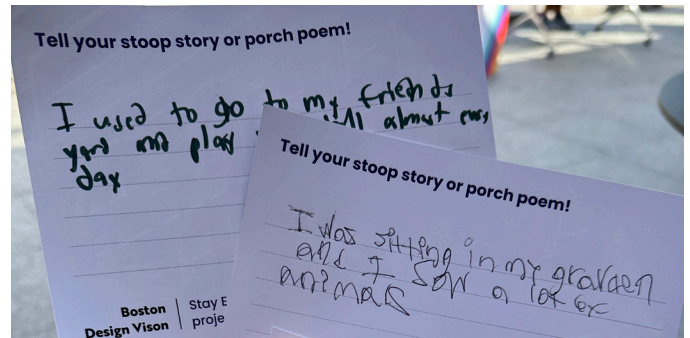 Tell your stoop story or porch poem!
I used to go to my friends
yard and play almost every
day
Boston
Design Vison
Stay E
proje
Tell your stoop story or porch poem!
I was sitting in my grarden
and I sow a lot of
animas